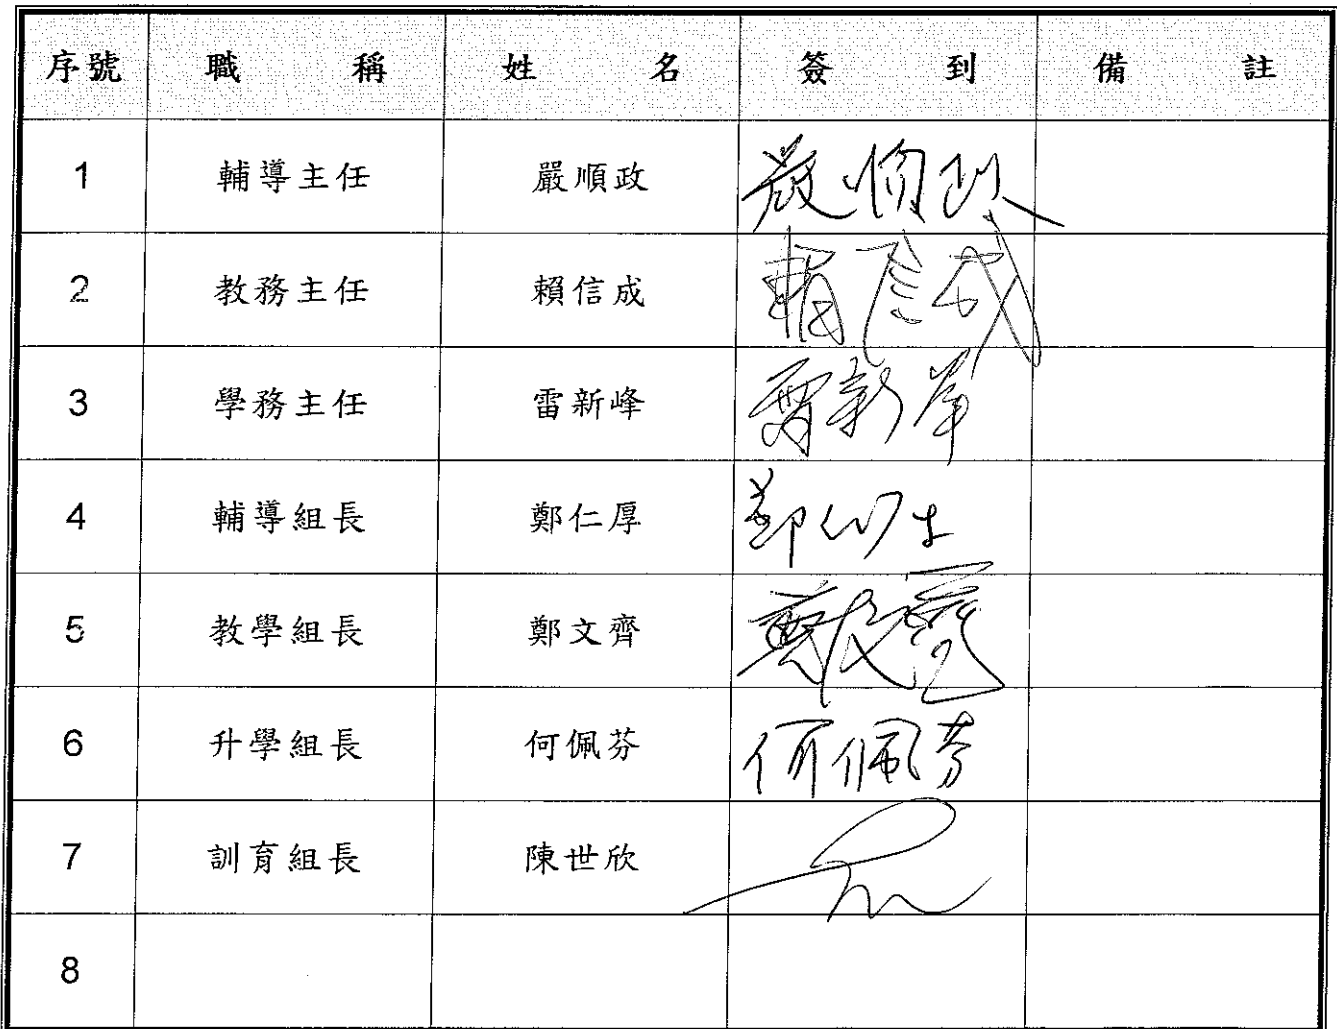 序號 職稱 姓名 簽到 備註
1 輔導主任 嚴順政 嚴順政
2 教務主任 賴信成 賴信成
3 學務主任 雷新峰 雷新峯
4 輔導組長 鄭仁厚 鄭仁
5 教學組長 鄭文齊
6 升學組長 何佩芬 何佩芬
7 訓育組長 陳世欣
8